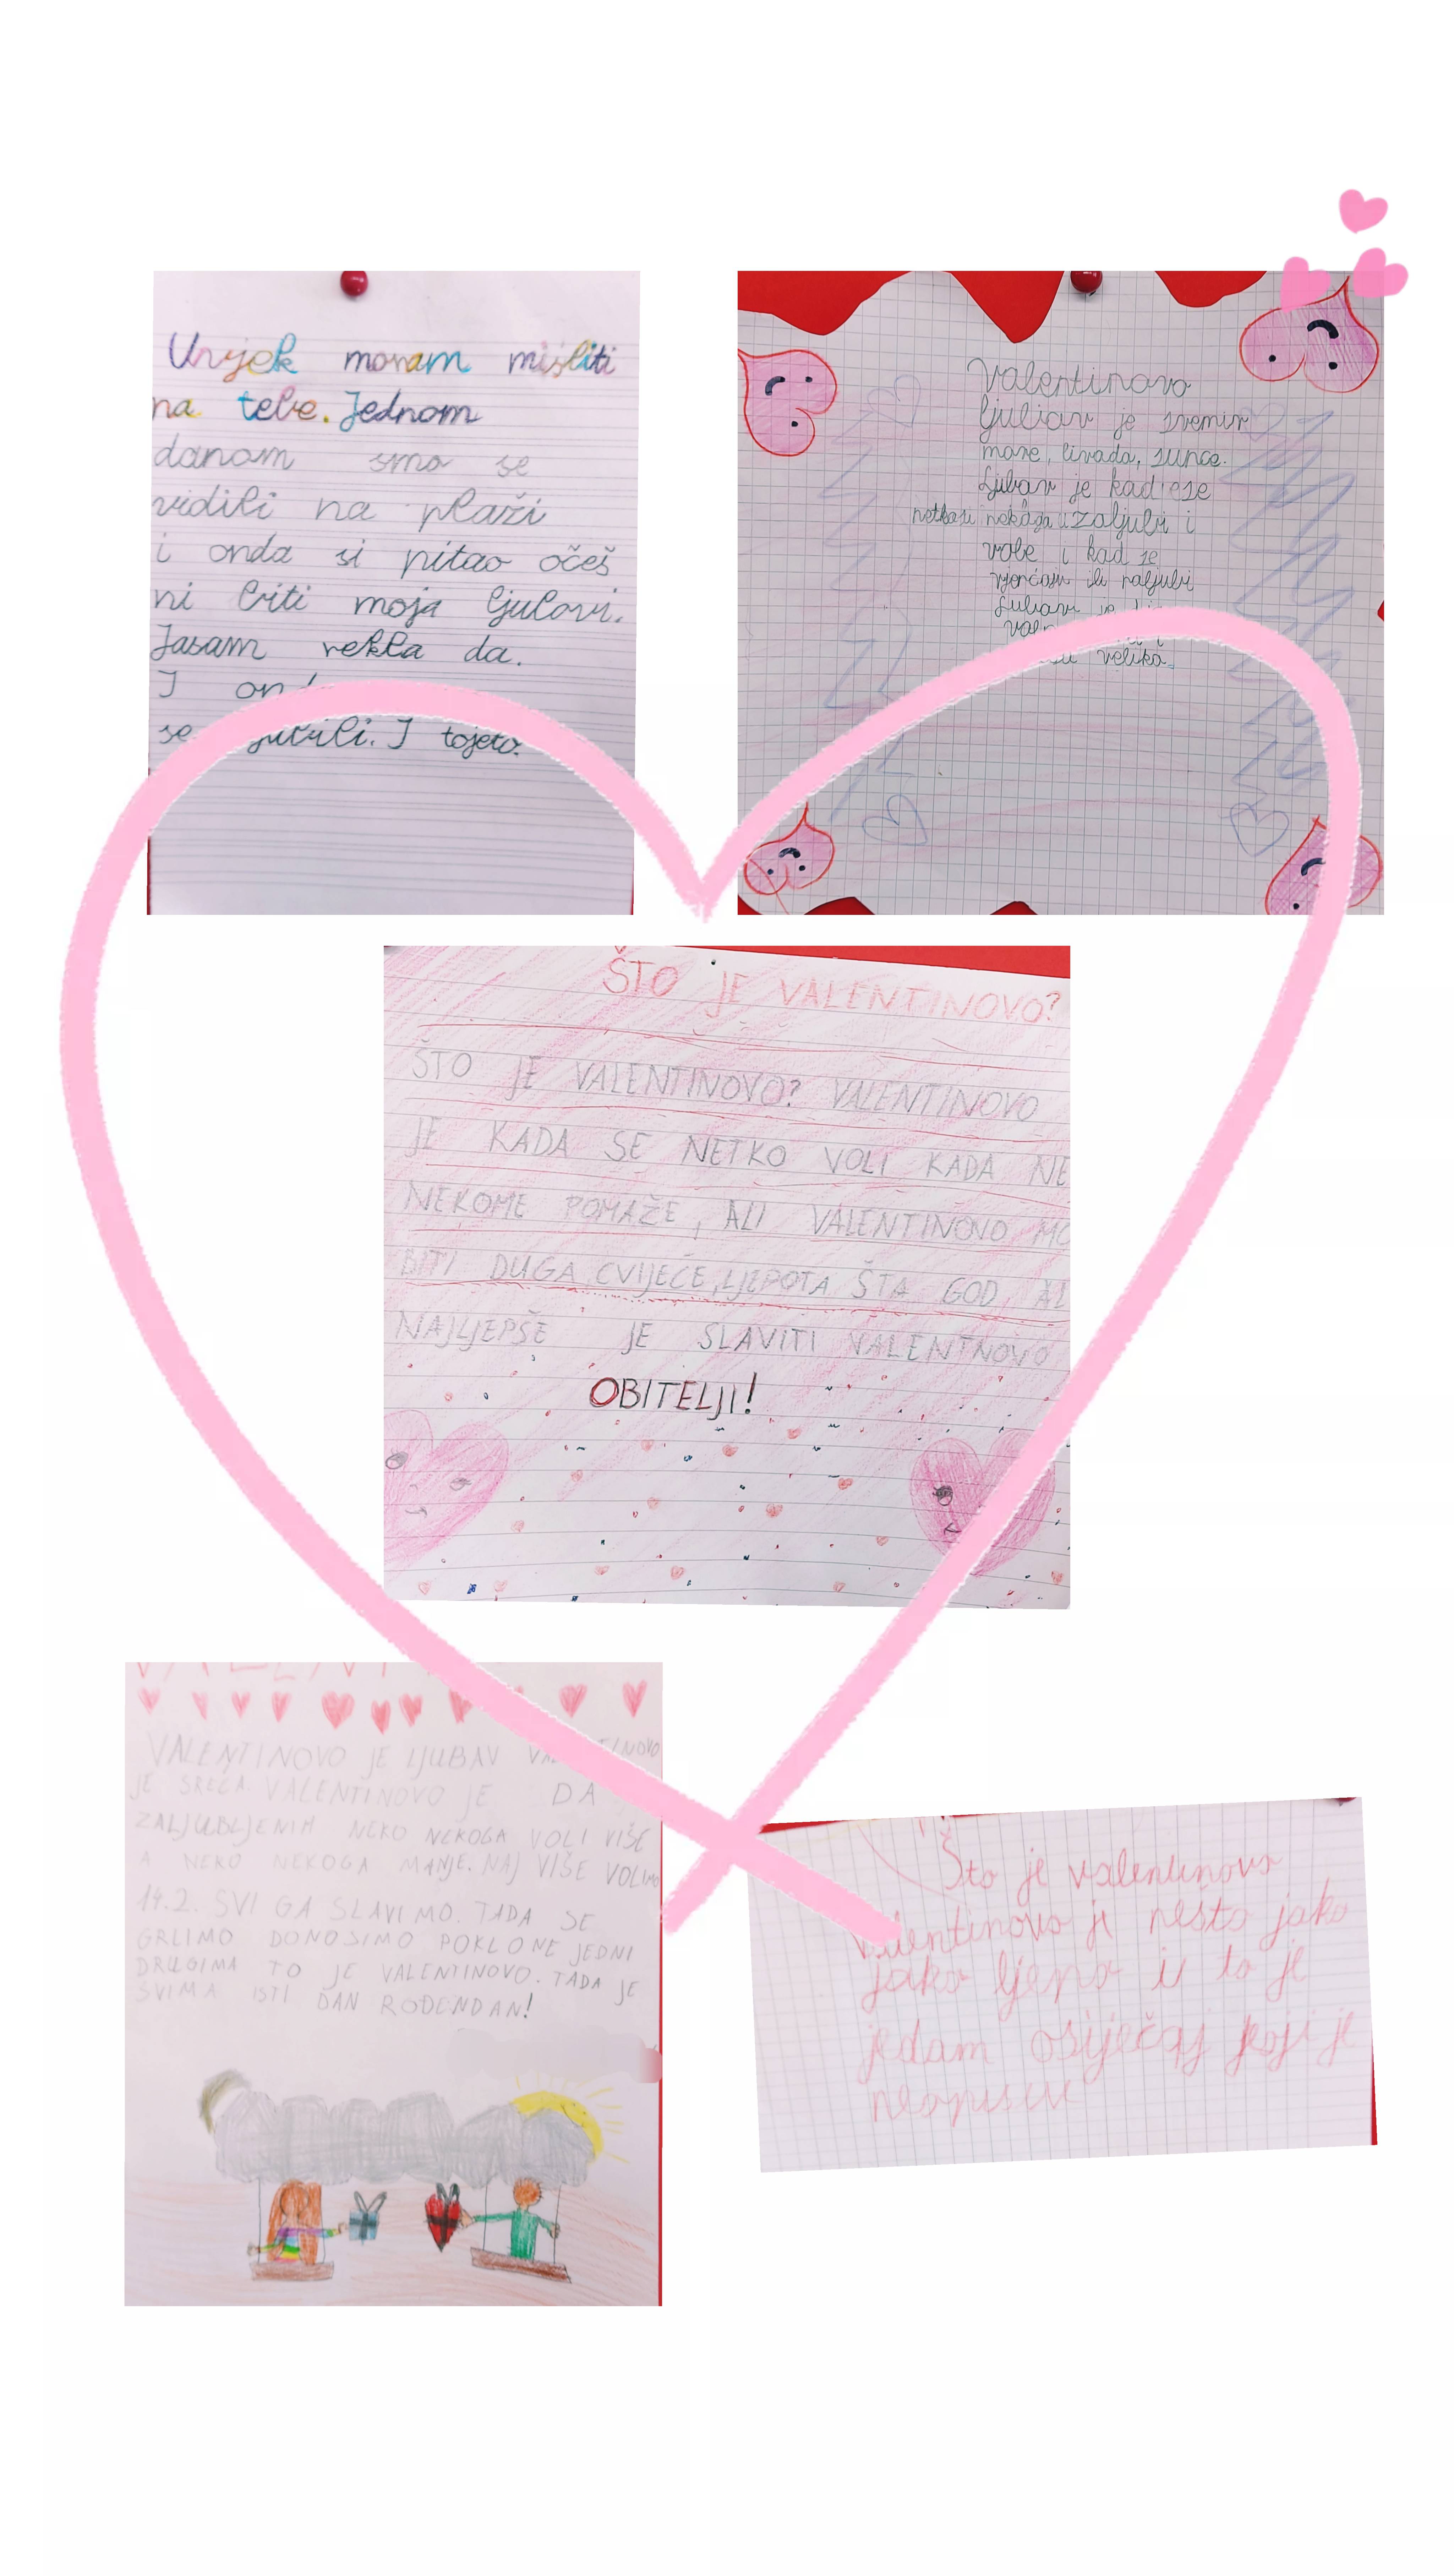 Uvjek moram misliti
na tebe. Jednom
danom smo se
vidili na plaži
i onda si pitao očeš
ni biti moja ljubavi.
Jasam rekla da.
I
se I tojeto.
Valentinovo
ljubav je svemir
more, livada, sunce.
Ljubav je kad se
nekoga zaljubi i
vole i kad se
ili poljubi
Ljubav je
velika.
ŠTO JE VALENTINOVO?
ŠTO JE VALENTINOVO? VALENTINOVO
JE KADA SE NETKO VOLI KADA NE
NEKOME POMAŽE, ALI VALENTINOVO MO
BITI DUGA, CVIJEĆE, LJEPOTA ŠTA GOD AL
NAJLJEPŠE JE SLAVITI VALENTNOVO
OBITELJI!
VALENTINOVO JE LJUBAV
JE SREĆA. VALENTINOVO JE DA
ZALJUBLJENIH NEKO NEKOGA VOLI VIŠE
A NEKO NEKOGA MANJE. NAJ VIŠE VOLIMO
14.2. SVI GA SLAVIMO. TADA SE
GRLIMO DONOSIMO POKLONE JEDNI
DRUGIMA TO JE VALENTINOVO. TADA JE
SVIMA ISTI DAN ROĐENDAN!
Što je valentinovo
valentinovo ji nešto jako
jako ljepo i to je
jedam osiječaj koji je